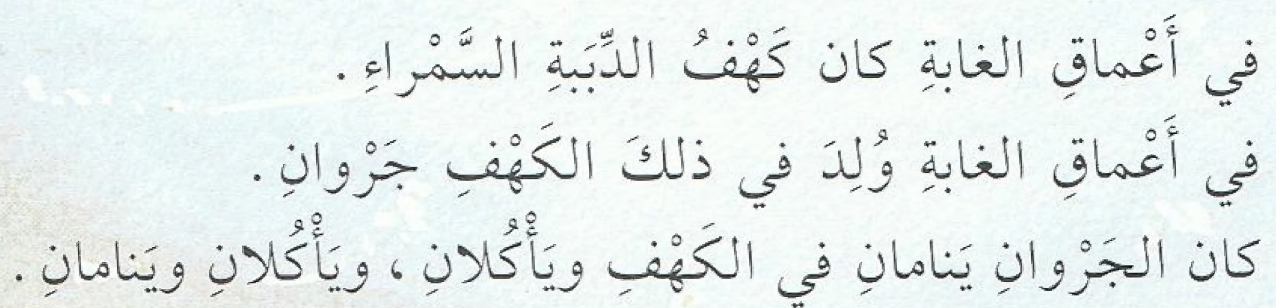 في أَعْماقِ الغابةِ كان كَهْفُ الدِّبَبةِ السَّمْراءِ.
في أَعْماقِ الغابةِ وُلِدَ في ذلكَ الكَهْفِ جَرْوانِ.
كان الجَرْوانِ يَنامانِ في الكَهْفِ ويَأْكُلانِ، ويَأْكُلانِ ويَنامانِ.